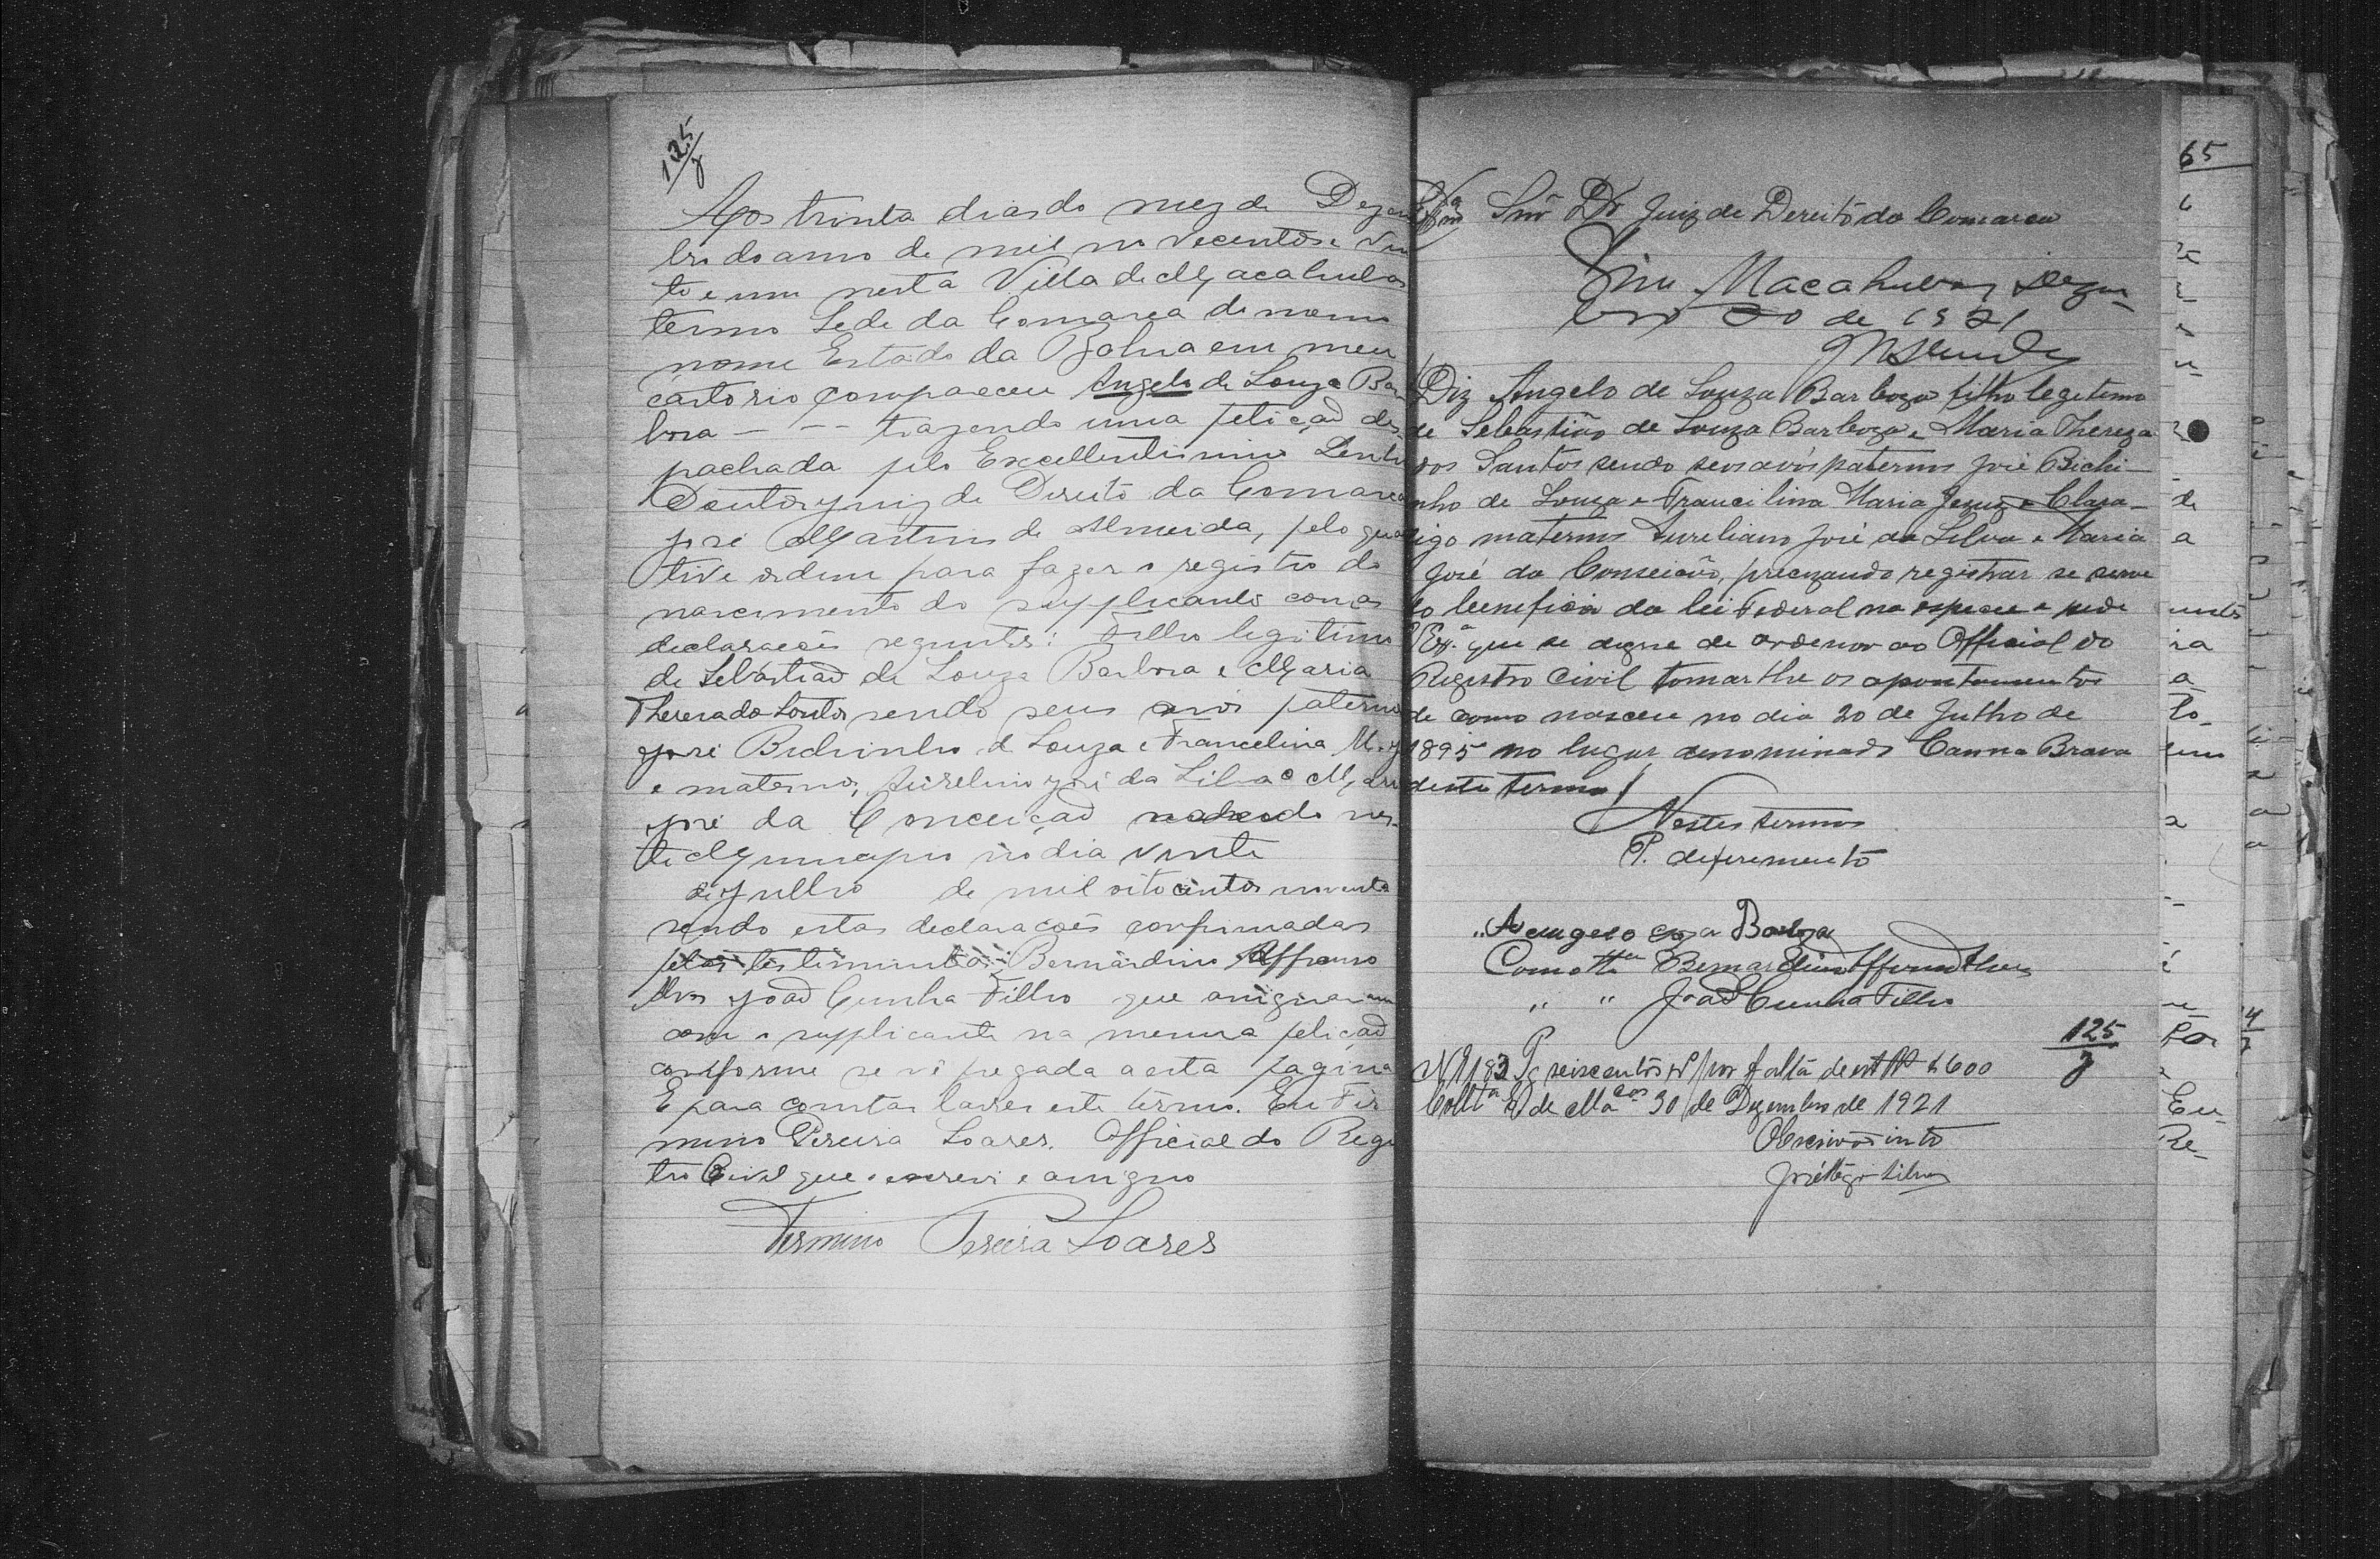 125
Aos trinta dias do mez de Dezem
bro do anno de mil no vecentos e vin
te e um nesta Villa de Macahubas
termo Sede da Comarca do mesmo
nome Estado da Bahia em meu
cartorio compareceu Angelo de Souza Bar
bosa - - - trazendo uma petição des
pachada pelo Excellentissimo Senhor
Doutor Juiz de Direito da Comarca
José Martins de Almeida, pelo qual
tive ordem para fazer o registro do
nascimento do supplicante com as
declarações seguintes: Filho legitimo
de Sebastião de Souza Barbosa e Maria
Theresa do Santos sendo seus avós paternos
José Bichinho de Souza e Francelina M. J
e maternos, Aurelino José da Silva e Maria
José da Conceição nascido nes
te Municipio no dia vinte
de Julho de mil oitocentos noventa
sendo estas declarações confirmadas
pelas testimunhas Bernardino Affonso
Alves João Cunha Filho que assignaram
com o supplicante na mesma petição
conforme se vê pegada a esta pagina
E para constar lavrei este termo. Eu Fir
mino Pereira Soares. Official do Regis
tro Civil que o escrevi e assigno
Firmino Pereira Soares
Snr Dr Juiz de Dereito da Comarca
Sim Macahubas Dezem
bro 30 de 1921
Diz Angelo de Souza Barboza filho legetemo
de Sebastião de Souza Barboza e Maria Thereza
dos Santos sendo seos avós paternos José Bichi-
nho de Souza e Francilina Maria Jezuz e Clara-
igo maternos Aureliano José da Silva e Maria
José da Conseicão, precizando registrar se serve
do beneficio da lei Federal na especie e pede
VExª. que se digne de ordenar ao Official do
Registro Civil tomar lhe os apontamentos
de como nasceu no dia 20 de Julho de
1895 no lugar denominado Canna Brava
deste termo
Nestes termos
P. deferemento
Barboza
Como ttª Bernardino Affonso Alves
" " João Cunha Filho
125
Nº 183 Pg seiscentos rs por falta de est Rs $600
Collta E de Macos 30 de Dezembro de 1921
O Escrivão intº
65
de
a
ra
a
to
Eu
Re-